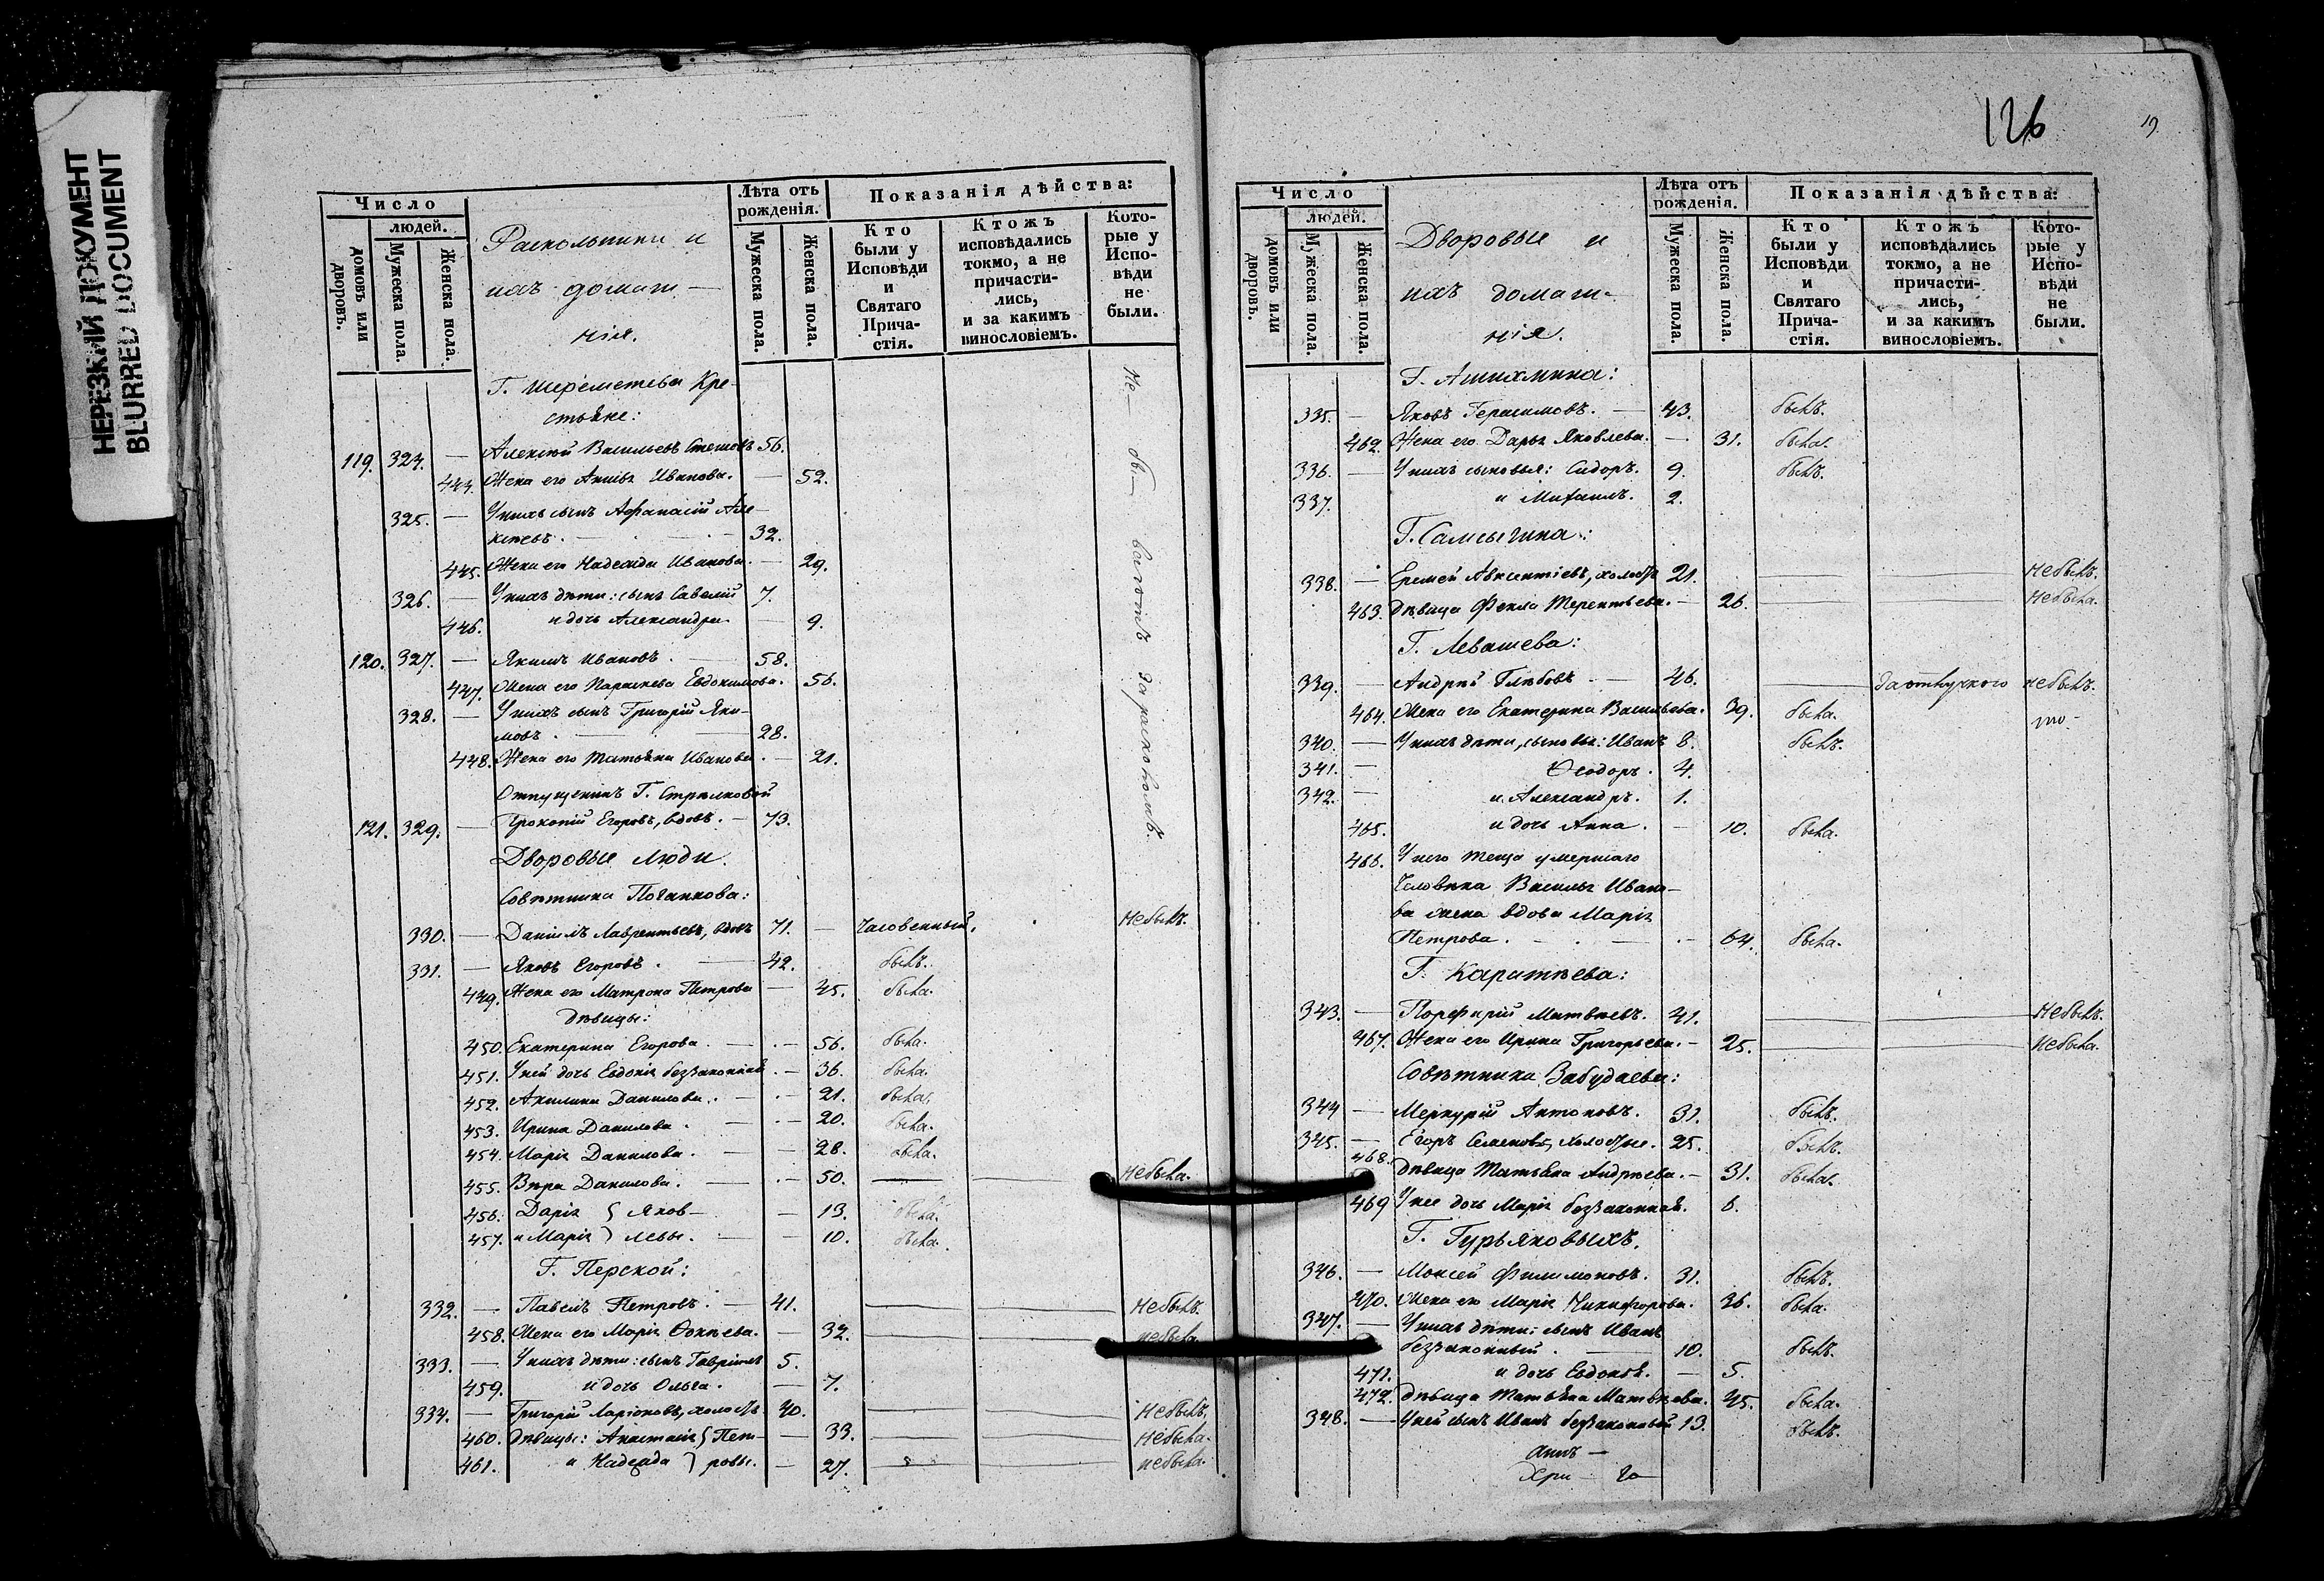 НЕРЕЗКИЙ ДОКУМЕНТ
BLURRED DOCUMENT
Число
людей.
домовъ или дворовъ.
Мужеска пола.
Женска пола.
Раскольники и
ихъ домаш-
нія.
Лѣта отъ рожденія.
Мужеска пола.
Женска пола.
Показанія дѣйства:
Кто были у Исповѣди и Святаго Прича-стія.
Ктожъ исповѣдались токмо, а не причасти-лись, и за какимъ винословіемъ.
Кото-рые у Испо-вѣди не были.
Г. Шереметева Кре-
стьяне:
119. 324. — Алексѣй Васильевъ 56.
444. Жена его Ивановa. — 52.
325. — У нихъ сынъ Афанасій Але-
ксѣевъ. — 32.
445. Жена его Надежда Иванова. — 29.
326. — У нихъ дѣти: сынъ Савелій 7.
446. и дочь Александра — 9.
120. 327. — Якимъ Ивановъ. — 58.
447. Жена его Параскева Евдокимова. 56.
328. — У нихъ сынъ Григорій Яки-
мовъ. — 28.
448. Жена его Татьяна Иванова. — 21.
Отпущеникъ Г. Стрѣлковой
121. 329. — Прокопій Егоровъ, вдовъ. — 73.
за расколомъ.
Дворовые люди.
Совѣтника Почанкова:
330. — Даніилъ Лаврентьевъ, вдовъ 71. — Часовенный. небылъ.
331. — Яковъ Егоровъ. — 42. былъ.
449. Жена его Матрона Петрова — 45. была.
дѣвицы:
450. Екатерина Егорова. — 56. была.
451. У ней дочь Евдокія беззаконная. — 36. была.
452. Акилина Данилова. — 21. была.
453. Ирина Данилова. — 20. была.
454. Марія Данилова. — 28. была.
455. Вѣра Данилова. — 50. — небыла.
456. Дарія } Яков- — 13. была.
457. и Марія } левы. — 10. была.
Г. Перской:
332. — Павелъ Петровъ. — 41. — небылъ.
458. Жена его Марія Ѳокѣева. — 32. — небыла
333. — У нихъ дѣти: сынъ Гавріилъ 5.
459. и дочь Ольга. — 7.
334. — Григорій Ларіоновъ, холостъ. 40. — небылъ,
460. дѣвицы: Анастасія } Пет- — 33. — небыла.
461. и Надежда } ровы. — 27. — небыла.
126
19.
Число
людей.
домовъ или дворовъ.
Мужеска пола.
Женска пола.
Дворовые и
ихъ домаш-
нія.
Лѣта отъ рожденія.
Мужеска пола.
Женска пола.
Показанія дѣйства:
Кто были у Исповѣди и Святаго Прича-стія.
Ктожъ исповѣдались токмо, а не причасти-лись, и за какимъ винословіемъ.
Кото-рые у Испо-вѣди не были.
Г. Ашихмина:
335. — Яковъ Герасимовъ. — 43. былъ.
462. Жена его Дарья Яковлева. — 31. была.
336. — У нихъ сыновья: Сидоръ. 9. былъ.
337. и Михаилъ. 2.
Г. Самсыгина:
338. — Еремей Авксентіевъ, холостъ 21. — небылъ.
463. Дѣвица Фекла Терентьева. — 26. — небыла.
Г. Левашева:
339. — Андрей Глѣбовъ — 46. — за отлучкою небылъ.
464. Жена его Екатерина Васильева. 39. была.
340. — У нихъ дѣти, сыновья: Иванъ 8. былъ.
341. — Ѳеодоръ. 4.
342. — и Александръ. 1.
465. и дочь Анна. — 10. была.
466. У него теща умершаго
человѣка Василья Ивано-
ва жена вдова Марія
Петрова. — 64. была.
Г. Каратѣева:
343. — Порфирій Матвѣевъ. 41. — небылъ.
467. Жена его Ирина Григорьева. — 25. — небыла.
Совѣтника Забудаева:
344 — Меркурій Антоновъ. 31. былъ.
345. — Егоръ Семеновъ, холостые. 25. былъ.
468. Дѣвица Татьяна Андрѣева. — 31. была.
469 У нее дочь Марія беззаконная. 6.
Г. Гурьяновыхъ.
346. — Моисей Филимоновъ. 31. былъ.
470. Жена его Марія Никифорова. 36. была.
347. — У нихъ дѣти: сынъ Иванъ
беззаконный. — 10. былъ.
471. и дочь Евдокія. — 5.
472. Дѣвица Татьяна Матвѣева. 45. была.
348. — У ней сынъ Иванъ беззаконный 13. былъ.